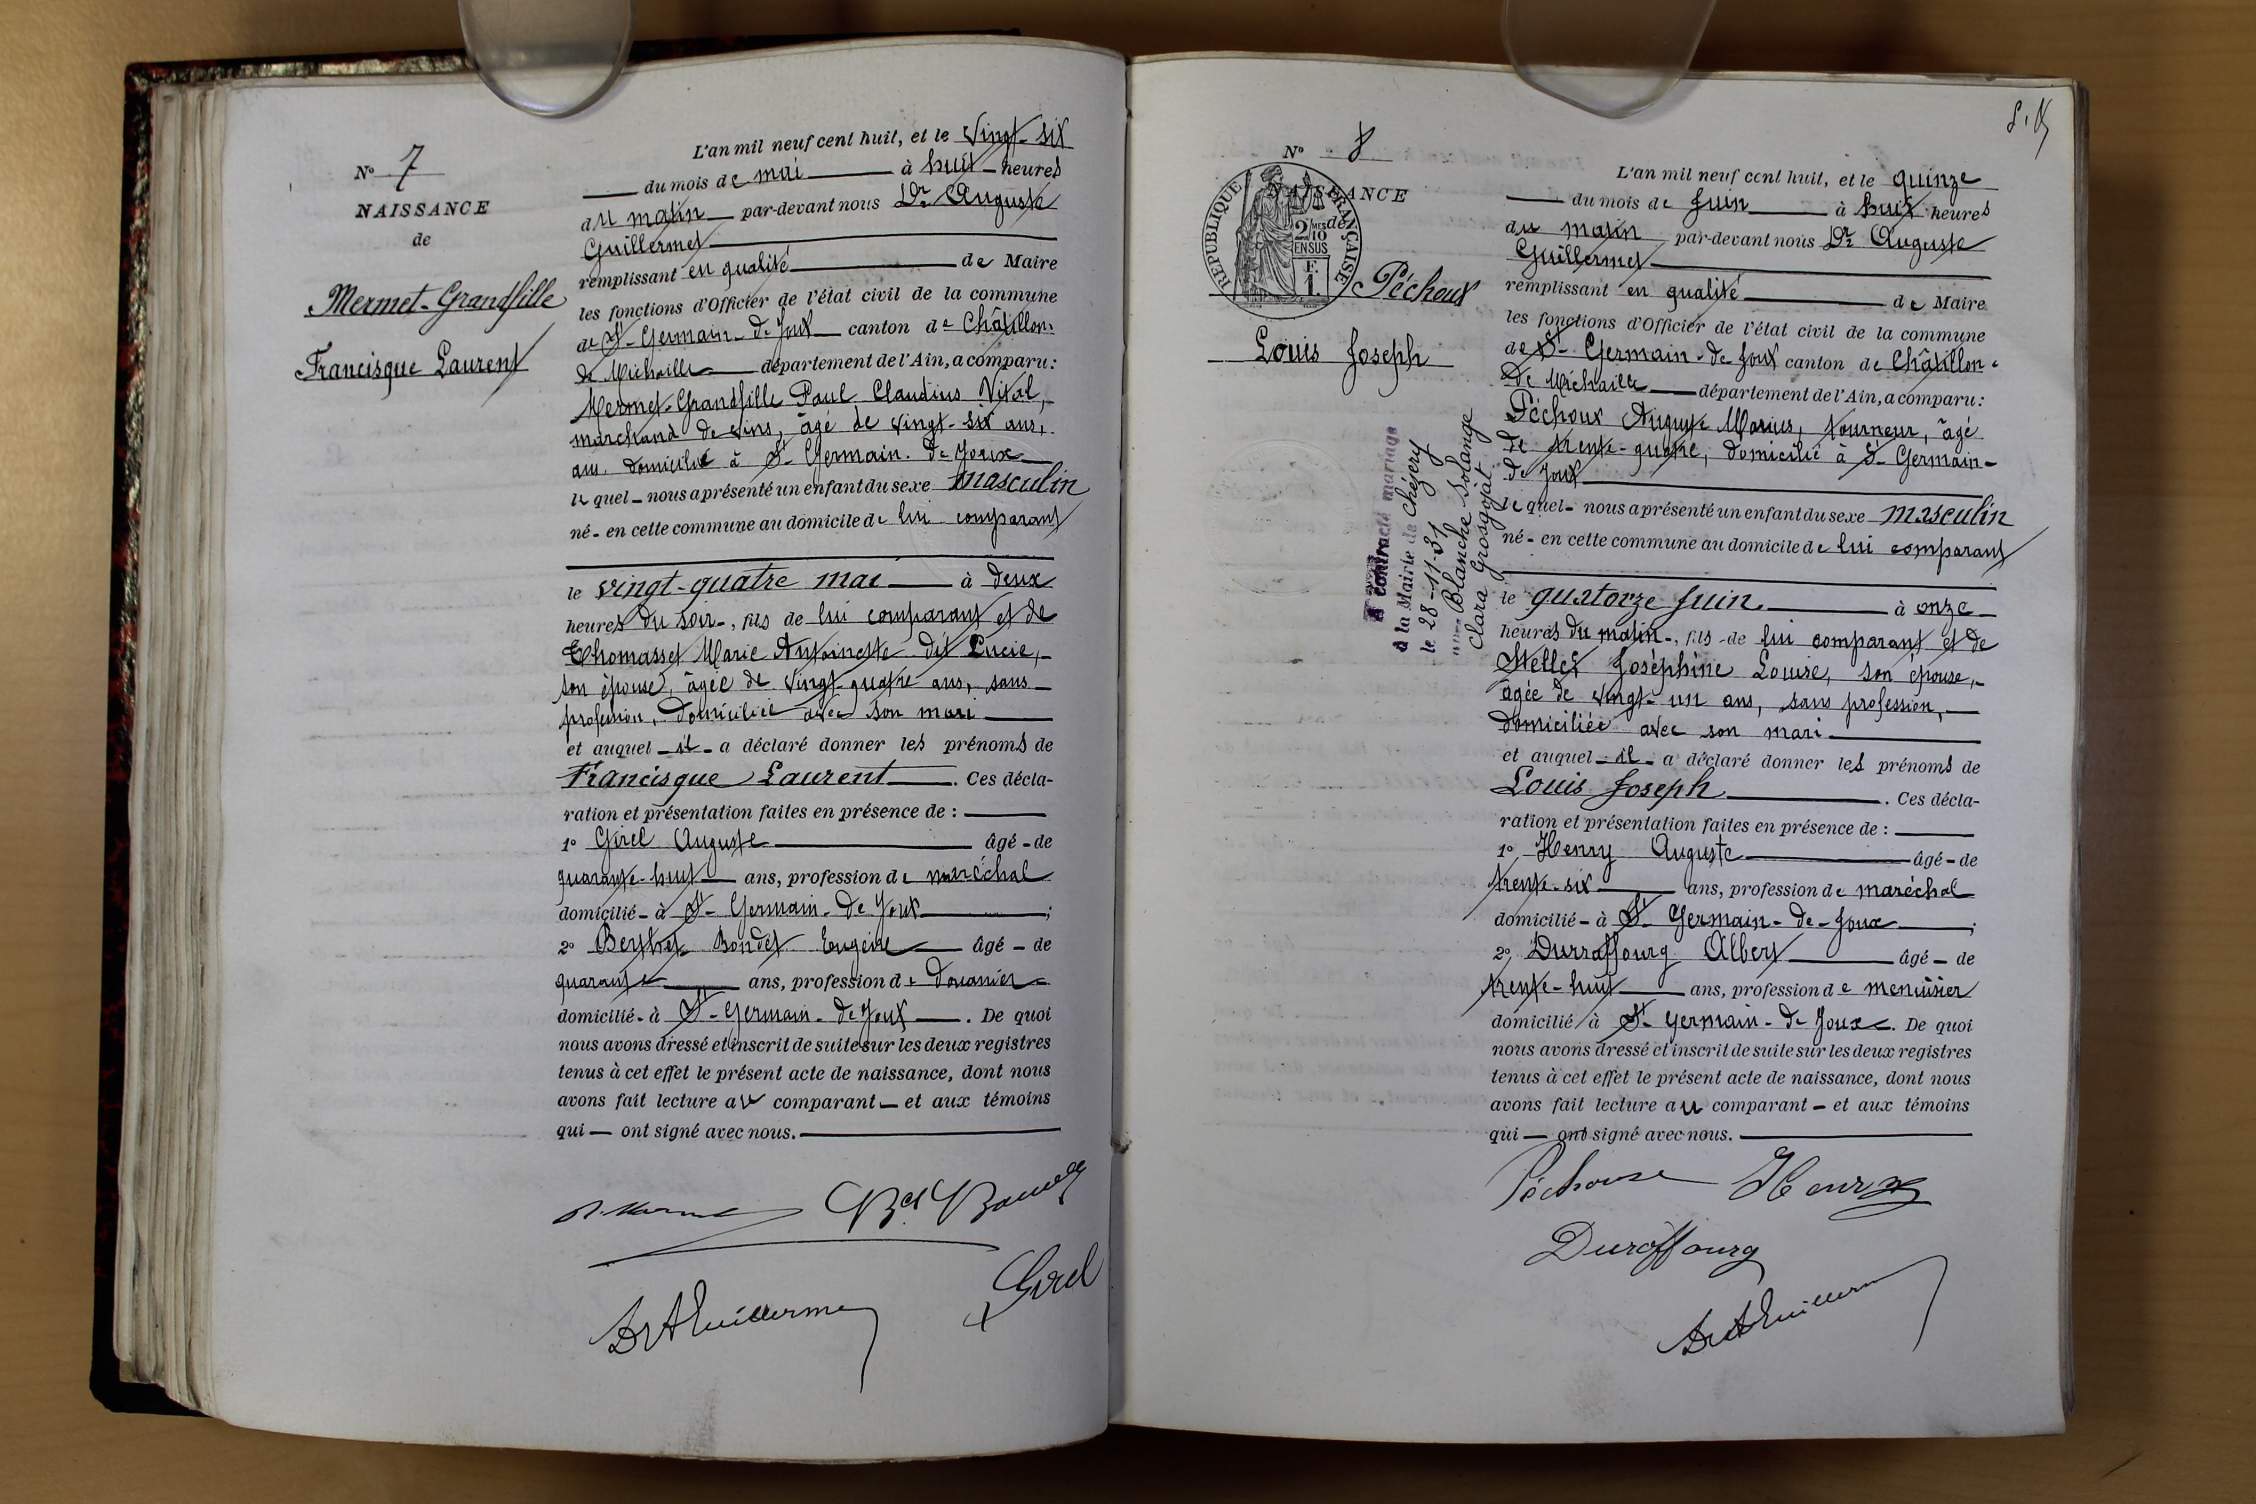 N° 7
NAISSANCE
de
Mermet-Grandfille
Francisque Laurent
L'an mil neuf cent huit, et le vingt-six
du mois de mai à huit heures
du matin par-devant nous Dr Auguste
Guillermet
remplissant en qualité de Maire
les fonctions d'Officier de l'état civil de la commune
de St-Germain-de-Joux canton de Châtillon-
de Michaille département de l'Ain, a comparu:
Mermet-Grandfille Paul Claudius Vital,
marchand de vins, âgé de vingt-six ans,
ans, domicilié à St-Germain-de-Joux
lequel nous a présenté un enfant du sexe masculin
né en cette commune au domicile de lui comparant
le vingt-quatre mai à deux
heures du soir, fils de lui comparant et de
Thomasset Marie Antoinette dit Lucie,
son épouse, âgée de vingt-quatre ans, sans
profession, domiciliée avec son mari
et auquel il a déclaré donner les prénoms de
Francisque Laurent. Ces décla-
ration et présentation faites en présence de :
1° Girel Auguste âgé de
quarante-huit ans, profession de maréchal
domicilié à St-Germain-de-Joux ;
2° Berthet-Bondet Eugène âgé de
quarante ans, profession de douanier
domicilié à St-Germain-de-Joux. De quoi
nous avons dressé et inscrit de suite sur les deux registres
tenus à cet effet le présent acte de naissance, dont nous
avons fait lecture au comparant et aux témoins
qui ont signé avec nous.
Bet Bondet
Girel
Dr A Guillermet
N° 8
NAISSANCE
de
RÉPUBLIQUE FRANÇAISE
2/10MES
EN SUS
F.
1.
Péchoux
Louis Joseph
A contracté mariage
à la Mairie de Chézery
le 28-11-31
avec Blanche Solange
Clara Grosgojat
L'an mil neuf cent huit, et le quinze
du mois de Juin à huit heures
du matin par-devant nous Dr Auguste
Guillermet
remplissant en qualité de Maire
les fonctions d'Officier de l'état civil de la commune
de St-Germain-de-Joux canton de Châtillon-
de Michaille département de l'Ain, a comparu:
Péchoux Auguste Marius, tourneur, âgé
de trente-quatre, domicilié à St-Germain-
de Joux
lequel nous a présenté un enfant du sexe masculin
né en cette commune au domicile de lui comparant
le quatorze Juin à onze
heures du matin, fils de lui comparant et de
Joséphine Louise, son épouse,
âgée de vingt-un ans, sans profession,
domiciliée avec son mari
et auquel il a déclaré donner les prénoms de
Louis Joseph. Ces décla-
ration et présentation faites en présence de :
1° Henry Auguste âgé de
trente-six ans, profession de maréchal
domicilié à St-Germain-de-Joux ;
2° Durraffourg Albert âgé de
trente-huit ans, profession de menuisier
domicilié à St-Germain-de-Joux. De quoi
nous avons dressé et inscrit de suite sur les deux registres
tenus à cet effet le présent acte de naissance, dont nous
avons fait lecture au comparant et aux témoins
qui ont signé avec nous.
Péchoux Henry
Duraffourg
Dr A Guillermet